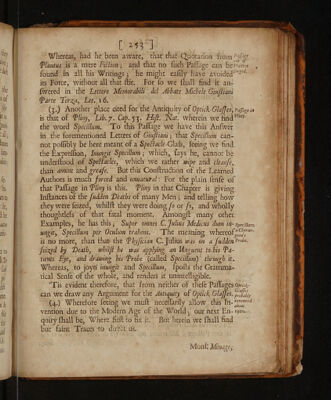 [ 253 ]
Whereas, had he been aware, that that Quotation from
Plautus is a mere Fiction, and that no such Passage can be
found in all his Writings; he might easily have avoided
its Force, without all that stir. For so we shall find it an-
swered in the Lettere Memorabili del Abbate Michele Giustiani
Parte Terza, Let. 16.
(3.) Another place cited for the Antiquity of Optick Glasses,
is that of Pliny, Lib. 7. Cap. 53. Hist. Nat. wherein we find
the word Specillum. To this Passage we have this Answer
in the forementioned Letters of Giustiani; that Specillum can-
not possibly be here meant of a Spectacle-Glass, seeing we find
the Expression, Inungit Specillum; which, says he, cannot be
understood of Spectacles, which we rather wipe and cleanse,
than anoint and grease. But this Construction of the Learned
Authors is much forced and unnatural: For the plain sense of
that Passage in Pliny is this. Pliny in that Chapter is giving
Instances of the sudden Deaths of many Men; and telling how
they were seized, whilst they were doing so or so, and wholly
thoughtless of that fatal moment. Amongst many other
Examples, he has this, Super omnes C. Julius Medicus dum in-
ungit, Specillum per Oculum trahens. The meaning whereof
is no more, than that the Physician C. Julius was on a sudden
seized by Death, whilst he was applying an Unguent to his Pa-
tients Eye, and drawing his Probe (called Specillum) through it.
Whereas, to joyn inungit and Specillum, spoils the Gramma-
tical Sense of the whole, and renders it unintelligible.
'Tis evident therefore, that from neither of these Passages
can we draw any Argument for the Antiquity of Optick Glasses.
(4.) Wherefore seeing we must necessarily allow this In-
vention due to the Modern Age of the World, our next En-
quiry shall be, Where first to fix it. But herein we shall find
but faint Traces to direct us.
Monsr. Menage,
Passage in
Pliny.